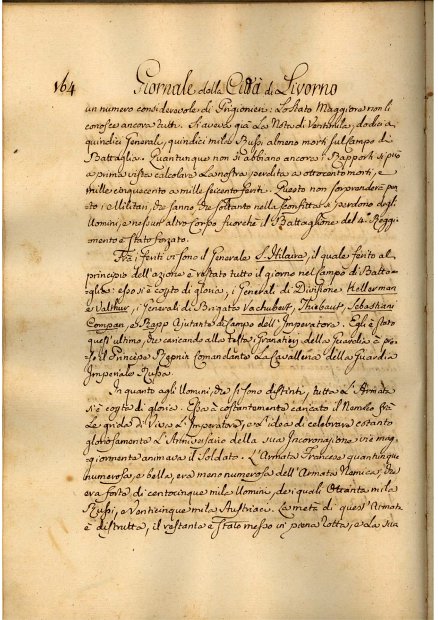 164
Giornale della Città di Livorno
un numero considerevole di Prigionieri: Lo Stato Maggiore non li
conosce ancora tutti. Si aveva già La Nota di Ventimila, dodici a
quindici Generali, quindici mila Russi, almeno morti sul Campo di
Battaglia. Quantunque non si abbiano ancora i Rapporti si può
a prima vista calcolare La nostra perdita a ottocento morti, e
mille cinquecento a mille seicento feriti. Questo non sorprenderà pun
to i Militari, che sanno che soltanto nella sconfitta si perdono degli
Uomini, e nessun altro Corpo fuorchè il Battaglione del 4.° Reggi
mento è stato forzato.
Fra i feriti vi sono il Generale S. Hilaire, il quale ferito al
principio dell'azione è restato tutto il giorno nel Campo di Batta-
glia: esso si è copto di gloria, i Generali di Divisione Kellerman
e Valther, i Generali di Brigata Vachubert, Thiebaut, Sebastiani
Compan, e Rapp Ajutante di Campo dell'Imperatore. Egli è stato
quest'ultimo, che caricando alla testa i Granatieri della Guardia è pre
so il Principe Repnin Comandante La Cavalleria della Guardia
Imperiale Russa.
In quanto agli Uomini, che si sono distinti, tutta L'Armata
si è copta di gloria. Essa à costantemente caricato il Nemico fra
Le grida di Viva L'Imperatore, e L'idea di celebrare cotanto
gloriosamente L'Anniversario della sua Incoronazione vie mag
giormente animava il Soldato. L'Armata Francese quantunque
numerosa, e bella, era meno numerosa dell'Armata Nemica, che
era forte di centocinque mila Uomini, de i quali Ottanta mila
Russi, e Venticinque mila Austriaci. La metà di quest'Armata
è distrutta, il restante è stato messo in piena rotta, e La sua